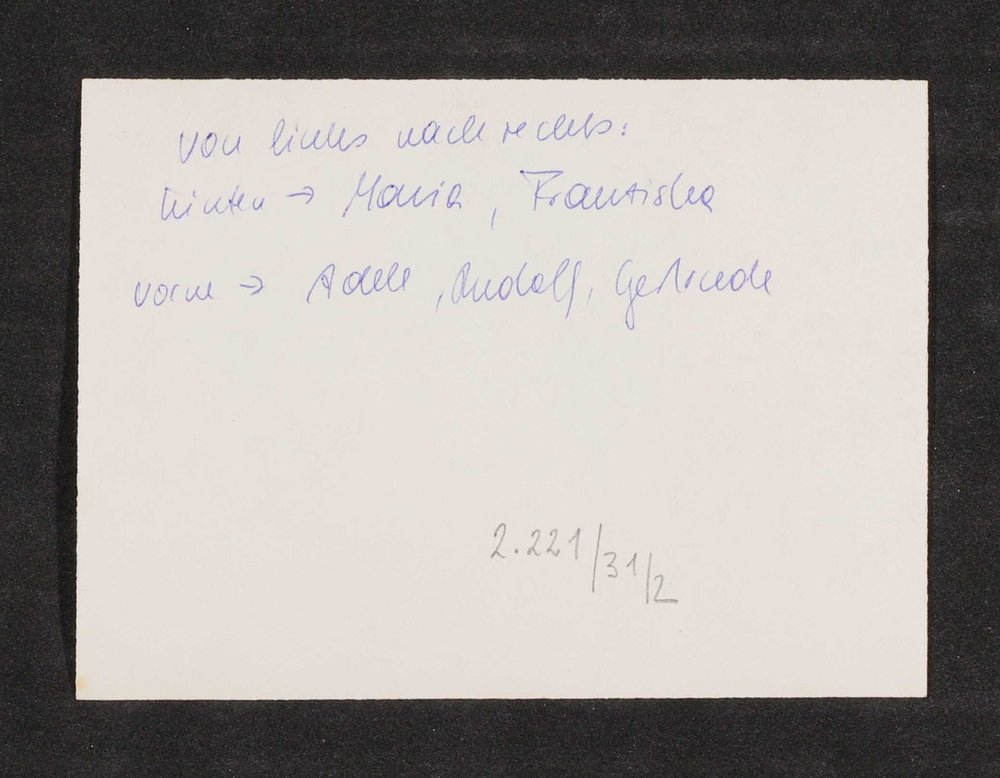 von links nach rechts:
hinten → Maria, Franziska
vorne → Adele, Rudolf, Gertrude
2.221/31/2